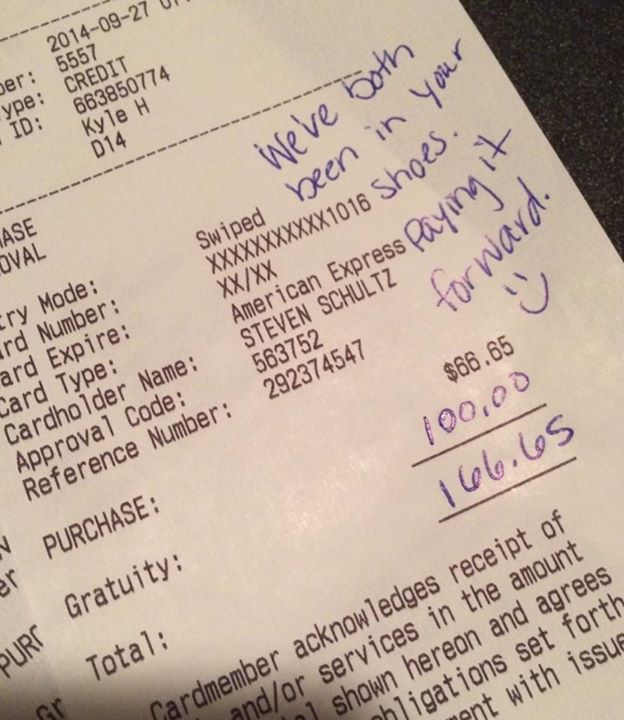 2014-09-27
ber: 5557
ype: CREDIT
ID: 663850774
Kyle H
D14
We've both
been in your
shoes.
Paying it
forward.
:)
ASE
OVAL
try Mode: Swiped
rd Number: XXXXXXXXXXX1016
ard Expire: XX/XX
Card Type: American Express
Cardholder Name: STEVEN SCHULTZ
Approval Code: 563752
Reference Number: 292374547
PURCHASE: $66.65
Gratuity: 100.00
Total: 166.65
Cardmember acknowledges receipt of
and/or services in the amount
shown hereon and agrees
obligations set forth
ent with issue
er
PURC
Gr